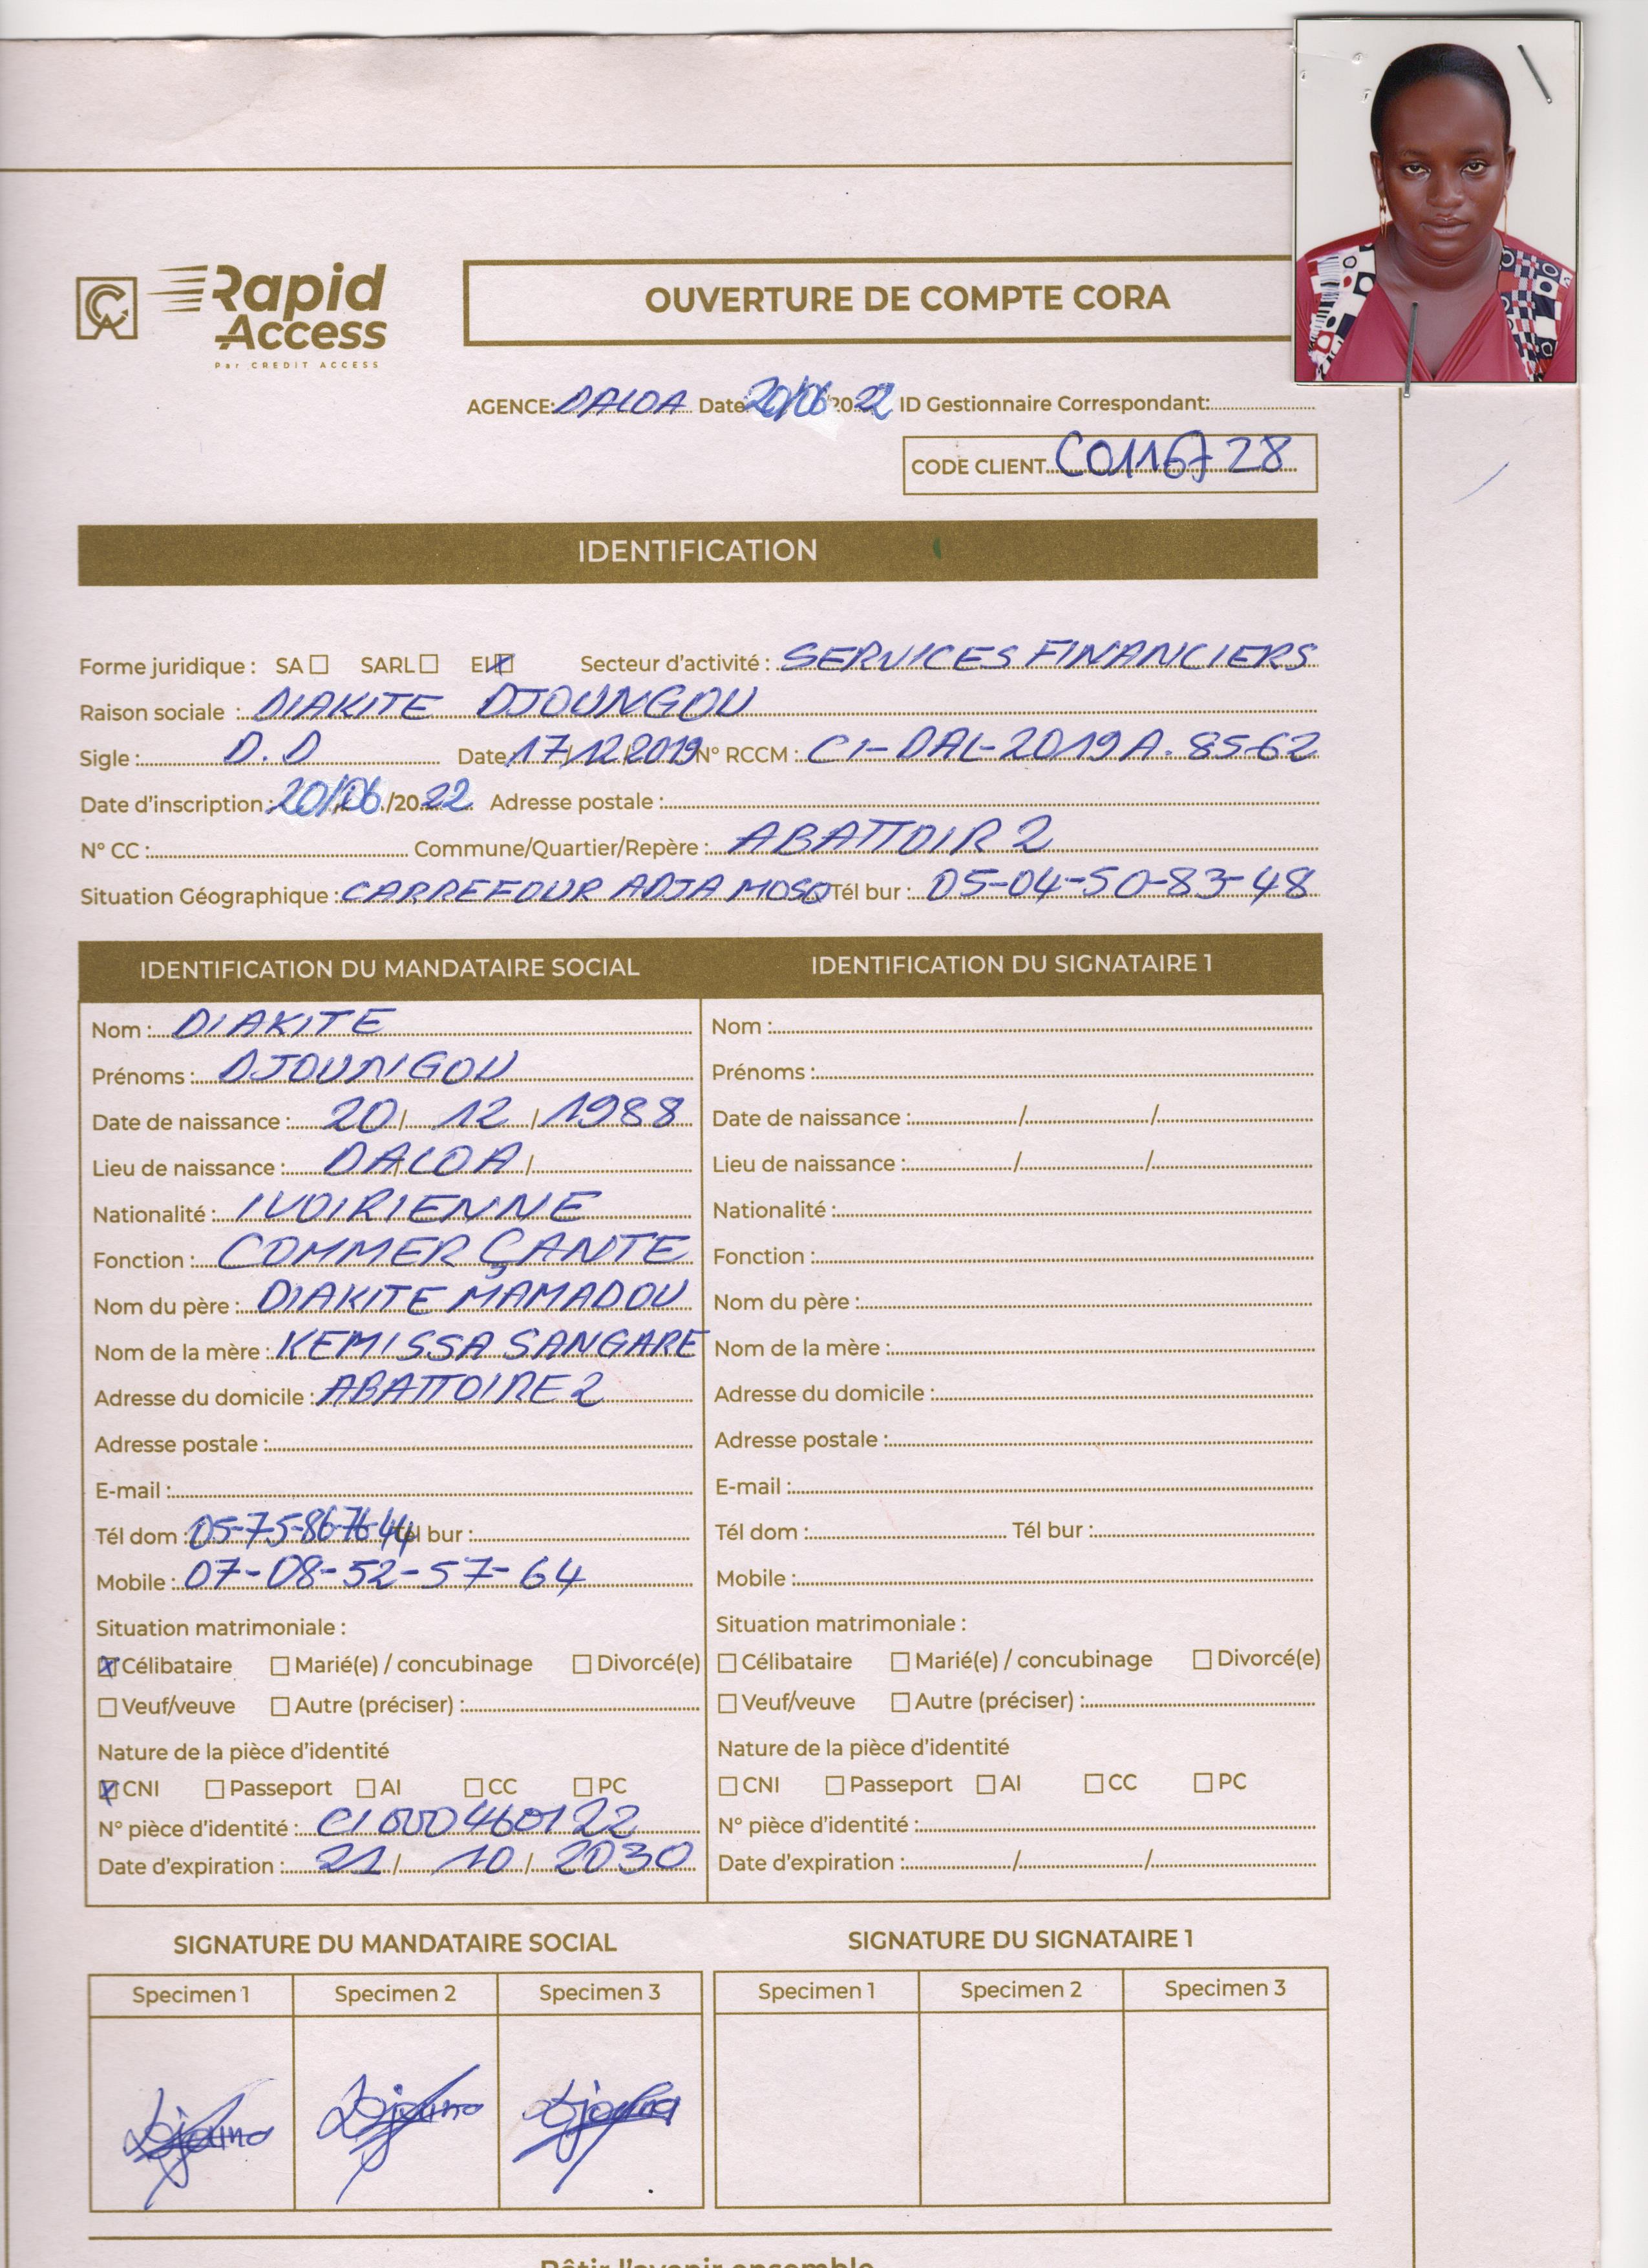 CA Rapid Access
Par CREDIT ACCESS
OUVERTURE DE COMPTE CORA
AGENCE: DALOA Date 20/06/2022 ID Gestionnaire Correspondant:
CODE CLIENT C0116728
IDENTIFICATION
Forme juridique : SA ☐ SARL ☐ EI ☒ Secteur d'activité : SERVICES FINANCIERS
Raison sociale : DIAKITE DJOUNGOU
Sigle : D.D Date 17/12/2019 N° RCCM : CI-DAL-2019A.8562
Date d'inscription : 20/06/2022 Adresse postale :
N° CC : Commune/Quartier/Repère : ABATTOIR 2
Situation Géographique : CARREFOUR ADJA MOSQ Tél bur : 05-04-50-83-48
IDENTIFICATION DU MANDATAIRE SOCIAL
Nom : DIAKITE
Prénoms : DJOUNGOU
Date de naissance : 20/12/1988
Lieu de naissance : DALOA /
Nationalité : IVOIRIENNE
Fonction : COMMERÇANTE
Nom du père : DIAKITE MAMADOU
Nom de la mère : KEMISSA SANGARE
Adresse du domicile : ABATTOIRE 2
Adresse postale :
E-mail :
Tél dom : 05-75-86-76-44 Tél bur :
Mobile : 07-08-52-57-64
Situation matrimoniale :
☒ Célibataire ☐ Marié(e) / concubinage ☐ Divorcé(e)
☐ Veuf/veuve ☐ Autre (préciser) :
Nature de la pièce d'identité
☒ CNI ☐ Passeport ☐ AI ☐ CC ☐ PC
N° pièce d'identité : CI000460122
Date d'expiration : 21/10/2030
IDENTIFICATION DU SIGNATAIRE 1
Nom :
Prénoms :
Date de naissance : / /
Lieu de naissance : / /
Nationalité :
Fonction :
Nom du père :
Nom de la mère :
Adresse du domicile :
Adresse postale :
E-mail :
Tél dom : Tél bur :
Mobile :
Situation matrimoniale :
☐ Célibataire ☐ Marié(e) / concubinage ☐ Divorcé(e)
☐ Veuf/veuve ☐ Autre (préciser) :
Nature de la pièce d'identité
☐ CNI ☐ Passeport ☐ AI ☐ CC ☐ PC
N° pièce d'identité :
Date d'expiration : / /
SIGNATURE DU MANDATAIRE SOCIAL
Specimen 1 Specimen 2 Specimen 3
SIGNATURE DU SIGNATAIRE 1
Specimen 1 Specimen 2 Specimen 3
Bâtir l'avenir ensemble